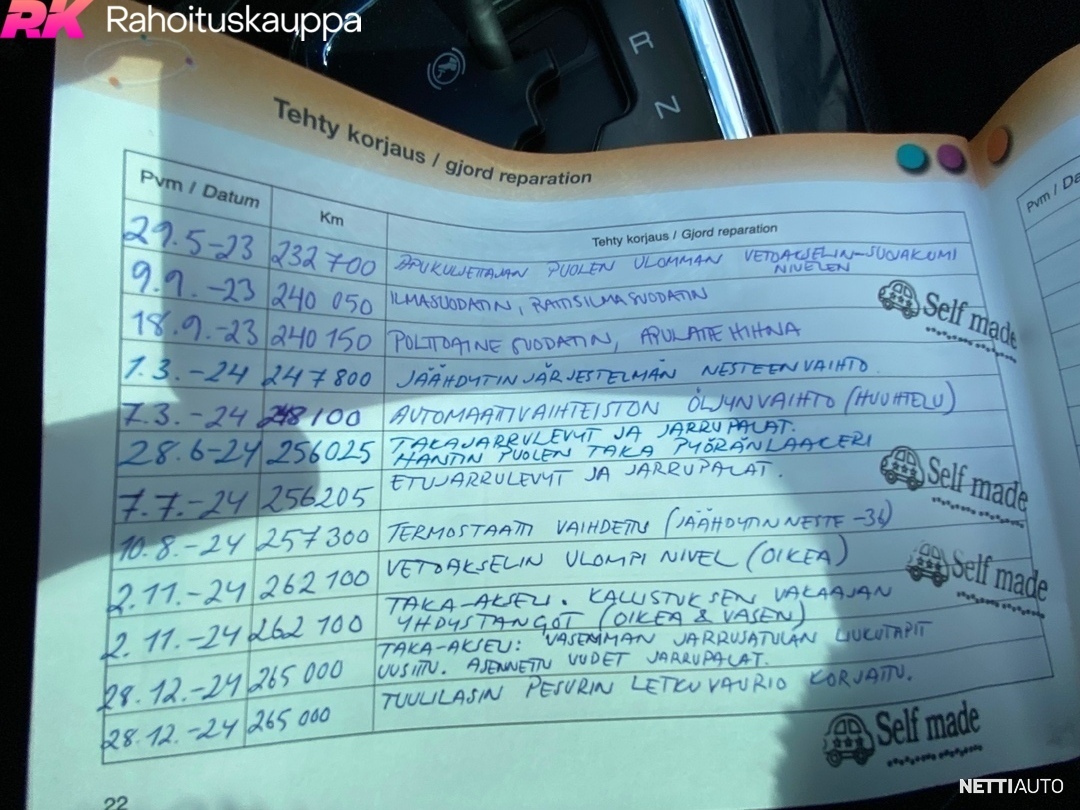 RK Rahoituskauppa
R
N
Tehty korjaus / gjord reparation
Pvm / Datum Km Tehty korjaus / Gjord reparation
Pvm / Da
29.5-23 232 700 APUKULJETTAJAN PUOLEN ULOMMAN VETOAKSELIN-SUOJAKUMI
NIVELEN
9.9.-23 240 050 ILMASUODATIN, RAITISILMASUODATIN
Self made
18.9.-23 240 150 POLTTOAINE SUODATIN, APULAITE HIHNA
1.3.-24 247800 JÄÄHDYTINJÄRJESTELMÄN NESTEENVAIHTO.
7.3.-24 248100 AUTOMAATTIVAIHTEISTON ÖLJYNVAIHTO (HUUHTELU)
28.6-24 256025 TAKAJARRULEVYT JA JARRUPALAT.
HANTIN PUOLEN TAKA PYÖRÄNLAAKERI
Self made
7.7.-24 256205 ETUJARRULEVYT JA JARRUPALAT.
10.8.-24 257300 TERMOSTAATTI VAIHDETTU (JÄÄHDYTINNESTE -36)
2.11.-24 262 100 VETOAKSELIN ULOMPI NIVEL (OIKEA)
Self made
2.11.-24 262 100 TAKA-AKSELI. KALLISTUKSEN VAKAAJAN
YHDYSTANGOT (OIKEA & VASEN)
28.12.-24 265 000 TAKA-AKSELI: VASEMMAN JARRUSATULAN LIUKUTAPIT
UUSITTU. ASENNETTU UUDET JARRUPALAT.
28.12.-24 265 000 TUULILASIN PESURIN LETKUVAURIO KORJATTU.
Self made
22
NETTIAUTO